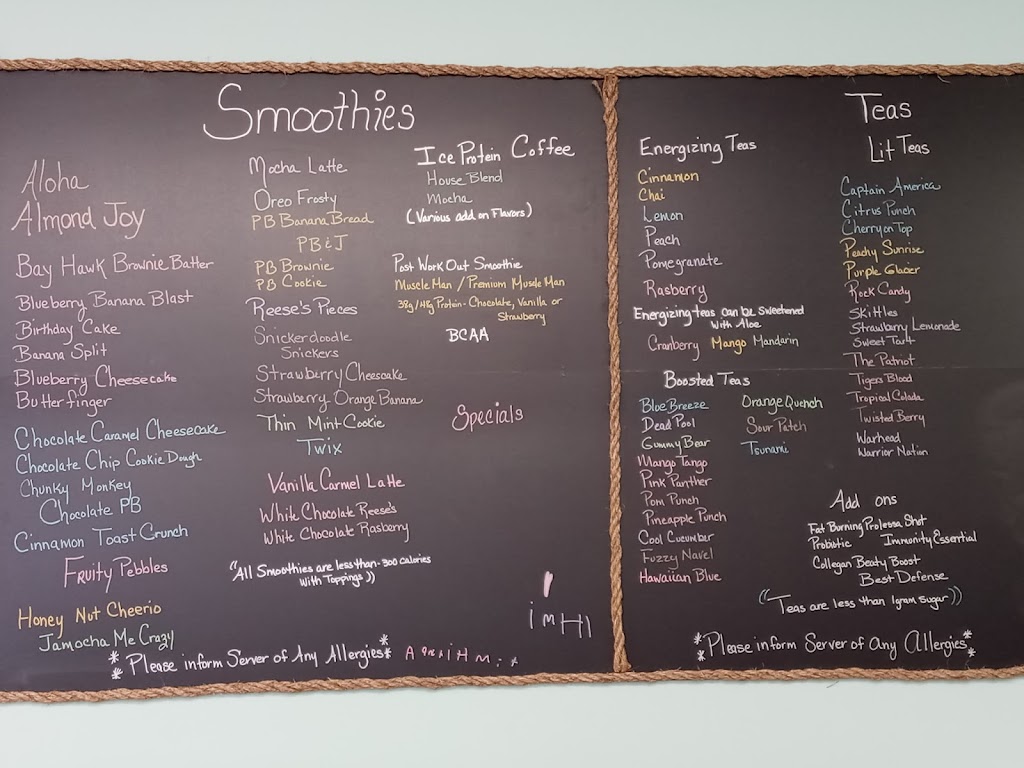 Smoothies
Aloha
Almond Joy
Bay Hawk Brownie Batter
Blueberry Banana Blast
Birthday Cake
Banana Split
Blueberry Cheesecake
Butterfinger
Chocolate Caramel Cheesecake
Chocolate Chip Cookie Dough
Chunky Monkey
Chocolate PB
Cinnamon Toast Crunch
Fruity Pebbles
Honey Nut Cheerio
Jamocha Me Crazy
Mocha Latte
Oreo Frosty
PB Banana Bread
PB & J
PB Brownie
PB Cookie
Reese's Pieces
Snickerdoodle
Snickers
Strawberry Cheescake
Strawberry Orange Banana
Thin Mint Cookie
Twix
Vanilla Carmel Latte
White Chocolate Reese's
White Chocolate Rasberry
"All Smoothies are less than 300 calories
With Toppings))
Ice Protein Coffee
House Blend
Mocha
(Various add on Flavors)
Post Work Out Smoothie
Muscle Man / Premium Muscle Man
38g/48g Protein - Chocolate, Vanilla or
Strawberry
BCAA
Specials
imHI
** Please inform Server of Any Allergies **
Teas
Energizing Teas
Cinnamon
Chai
Lemon
Peach
Pomegranate
Rasberry
Energizing teas can be Sweetened
With Aloe
Cranberry Mango Mandarin
Boosted Teas
Blue Breeze
Dead Pool
Gummy Bear
Mango Tango
Pink Panther
Pom Punch
Pineapple Punch
Cool Cucumber
Fuzzy Navel
Hawaiian Blue
Orange Quench
Sour Patch
Tsunami
Lit Teas
Captain America
Citrus Punch
Cherry on Top
Peachy Sunrise
Purple Glacier
Rock Candy
Skittles
Strawberry Lemonade
Sweet Tart
The Patriot
Tigers Blood
Tropical Colada
Twisted Berry
Warhead
Warrior Nation
Add ons
Fat Burning Prolessa Shot
Probiotic Immunity Essential
Collegan Beaty Boost
Best Defense
((Teas are less than 1gram sugar))
** Please inform Server of Any Allergies **